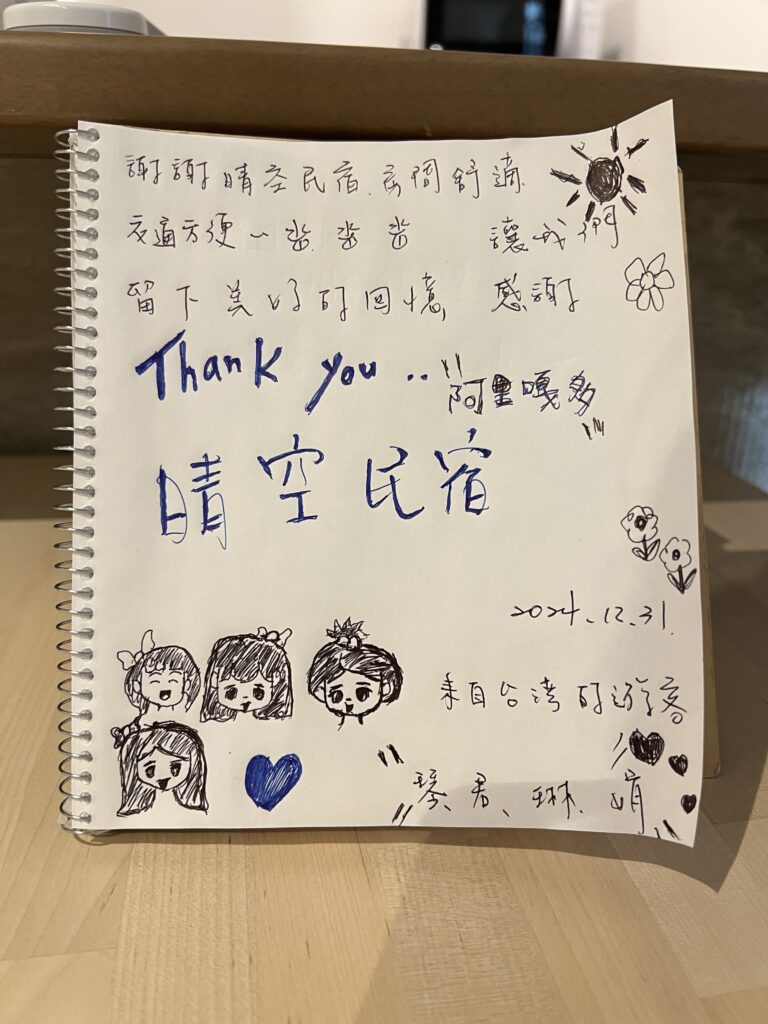 謝謝晴空民宿、房間舒適
交通方便～讚讚讚 讓我們
留下美好的回憶, 感謝
Thank you..
"阿里嘎多"
晴空民宿
2024.12.31.
來自台灣的遊客
"琴、君、琳、娟"